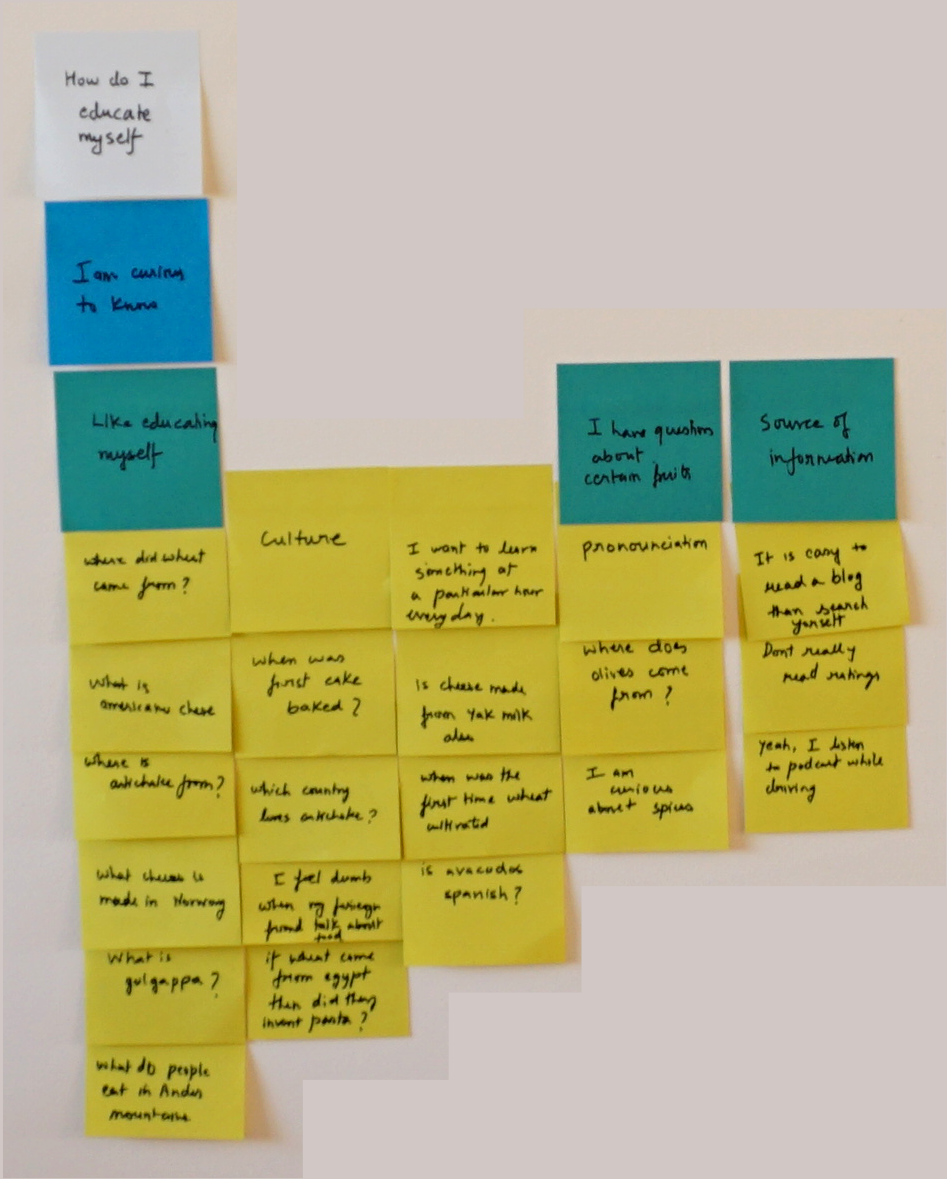 How do I
educate
myself
I am curious
to know
Like educating
myself
where did wheat
came from?
What is
americans chese
where is
antichake from?
What cheese is
made in Norway
What is
gulgappa?
what do people
eat in Andes
mountains
Culture
when was
first cake
baked?
which country
loves antichake?
I feel dumb
when my foreign
friend talk about
food
if wheat come
from egypt
then did they
invent pasta?
I want to learn
something at
a particular hour
everyday.
is cheese made
from Yak milk
also
when was the
first time wheat
cultivated
is avacados
spanish?
I have questions
about
certain fruits
pronounciation
where does
olives come
from?
I am
curious
about spices
Source of
information
It is easy to
read a blog
than search
yourself
Dont really
read ratings
yeah, I listen
to podcast while
driving